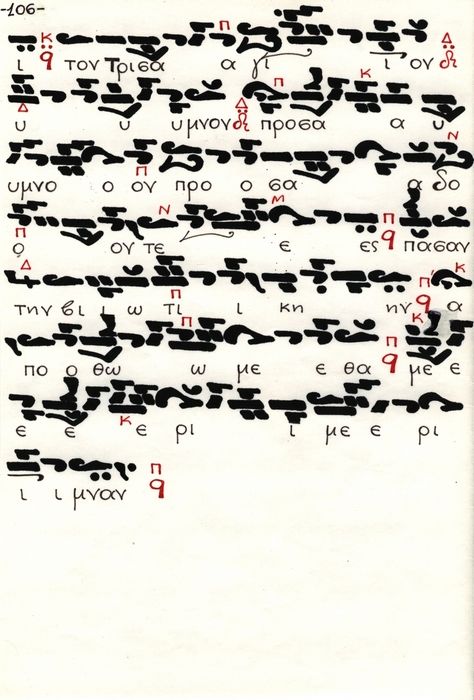 -106-
ι τον Τρισα α γι ι ον
υ υ υμνον προσα α υ
υμνο ο ον προ ο σα α δο
ο ον τε ε ες πασαν
την βι ι ω τι ι κη ην α
πο ο θω ω με ε θα με ε
ε ε ε ρι ι με ε ρι
ι ι μναν